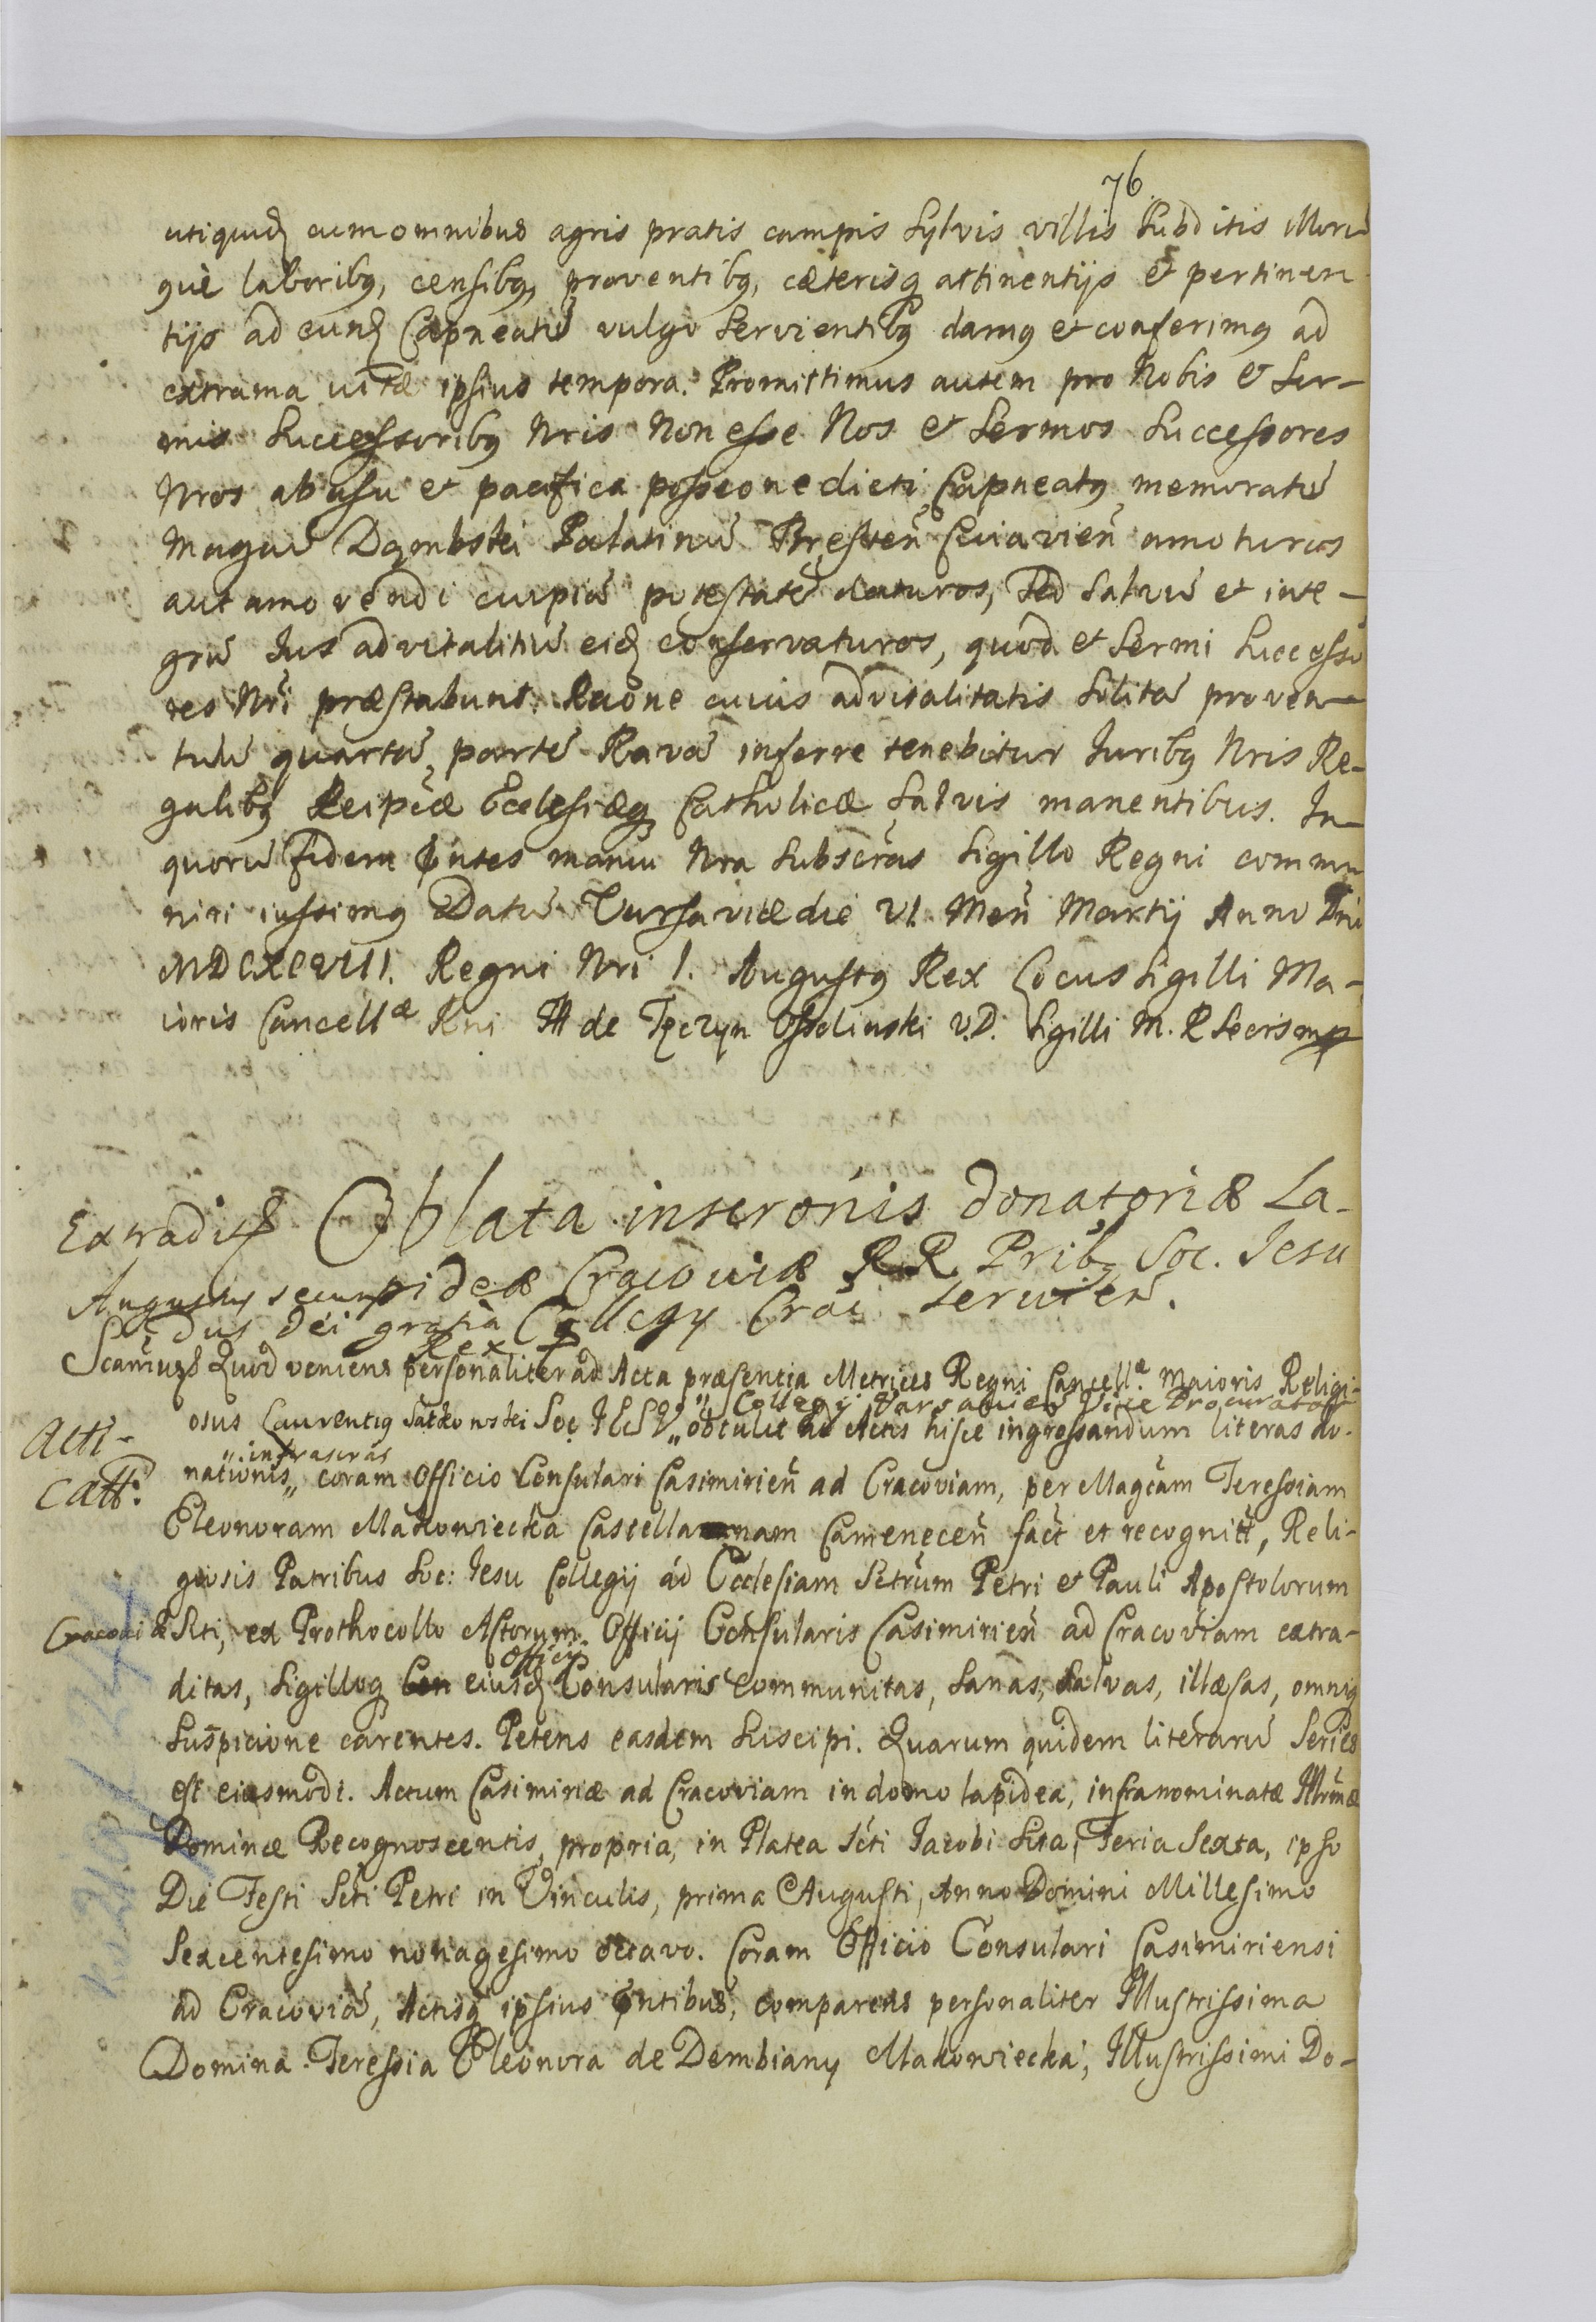 76
utiquidem cum omnibus agris pratis campis Sylvis villis Subditis illoru
que laboribq, censibq, proventibq, cæterisq attinentijs & pertinen
tijs ad eund Capneatu vulgo Servientibq damq et conferimq ad
extrama vitæ ipsius tempora. Promittimus autem pro Nobis & Ser-
mis Successoribq Nris Non esse Nos & Sermos Successores
Nros ab usu & pacifica posseone dicti Capneatq memoratu
Magcu Dąmbski Palatinu Bresten Cuiavien amoturos
aut amovendi cuipia potestate daturos, Sed Salvu et inte-
gru Jus advitalitiu eid conservaturos, quod & Sermi Successo
res Nri præstabunt. Raône cuius advitalitatis Solita proven-
tuu quarta, parte Rava inferre tenebitur Juribq Nris Re-
galibq Reipcæ Ecclesiæq Catholicæ Salvis manentibus. In
quoru fidem pntes manu Nra Subscras Sigillo Regni commu
niri iussimq Datu Varsaviæ die VI. Men Martij Anno Dni
MDCXCVIII. Regni Nri I. Augustq Rex Locus Sigilli Ma-
ioris Cancellæ Rni H de Tęczyn Ossolinski V.D. Sigilli M. R Secris mp
Extradit Oblata inscronis donatoriæ La-
pideæ Cracoviæ RR Pribq Soc. Jesu
Augustus secun
dus Dei gratia Collegy Crac Servien.
Rex P
Scamus Quod veniens personaliter ad Acta præsentia Metrices Regni Cancellæ Maioris Religi-
" Collegij Varsavien Vice Procurator
osus Laurentiq Satkowski Soc IESV " obtulit ad Actis hisce ingrossandum literas do-
Acti-
catt.
" infrascras
nationis " coram Officio Consulari Casimirien ad Cracoviam, per Magcam Teressiam
Eleonoram Makowiecka Castellanam Camenecen fact et recognitt, Reli-
giosis Patribus Soc: Jesu Collegij ad Ecclesiam Sctrum Petri & Pauli Apostolorum
Cracoviæ Siti, ex Prothocollo Actorum Officij Consularis Casimirien ad Cracoviam extra-
Officij
ditas, Sigilloq Con eiusd Consularis communitas, Sanas, Salvas, illæsas, omniq
Suspicione carentes. Petens easdem Suscipi. Quarum quidem literaru Series
est eiusmodi. Actum Casimiriæ ad Cracoviam in domo lapidea, infranominatæ Illrmæ
Dominæ Recognoscentis, propria, in Platea Scti Jacobi Sita, Feria Sexta, ipso
Die Festi Scti Petri in Vinculis, prima Augusti, Anno Domini Millesimo
Sexcentesimo nonagesimo octavo. Coram Officio Consulari Casimiriensi
ad Cracovia, Actisq ipsius pntibus, comparens personaliter Illustrissima
Domina Teressia Eleonora de Dembiany Makowiecka, Illustrissimi Do-